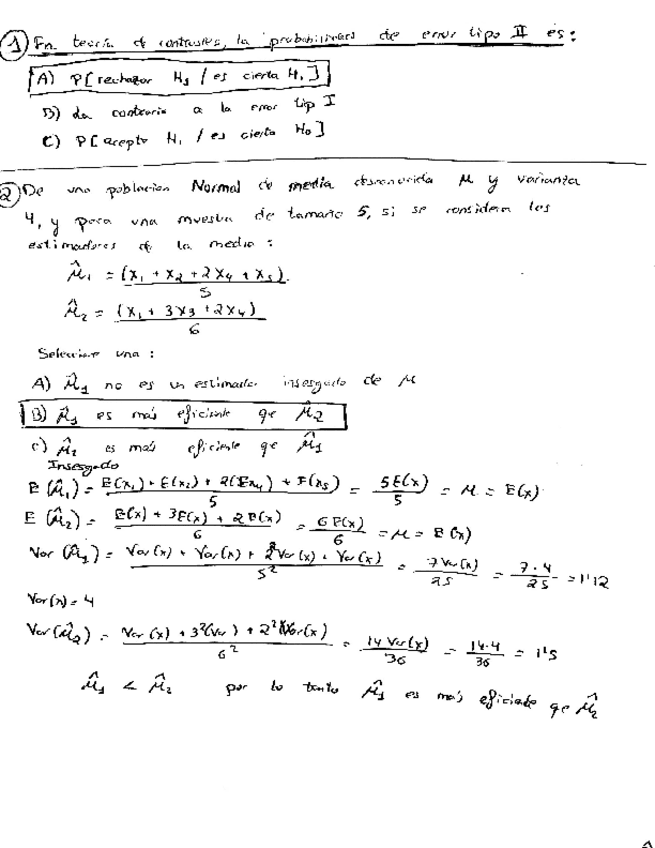 1) En teoría de contrastes, la probabilidad de error tipo II es:
A) P[rechazar H₁ / es cierta H₁]
B) La contraria a la error tip I
C) P[acepto H₁ / es cierto H₀]
2) De una población Normal de media desconocida μ y varianza
4, y para una muestra de tamaño 5, si se considera los
estimadores de la media:
μ̂₁ = (x₁ + x₂ + 2x₄ + x₅) / 5
μ̂₂ = (x₁ + 3x₃ + 2x₄) / 6
Seleccione una:
A) μ̂₁ no es un estimador insesgado de μ
B) μ̂₁ es más eficiente qe μ̂₂
C) μ̂₂ es más eficiente qe μ̂₁
Insesgado
E(μ̂₁) = E(x₁) + E(x₂) + 2(Ex₄) + E(x₅) / 5 = 5E(x) / 5 = μ = E(x)
E(μ̂₂) = E(x) + 3E(x) + 2E(x) / 6 = 6E(x) / 6 = μ = E(x)
Var(μ̂₁) = Var(x) + Var(x) + 2²Var(x) + Var(x) / 5² = 7Var(x) / 25 = 7·4 / 25 = 1'12
Var(x) = 4
Var(μ̂₂) = Var(x) + 3²(Var) + 2²Var(x) / 6² = 14Var(x) / 36 = 14·4 / 36 = 1'5
μ̂₁ < μ̂₂ por lo tanto μ̂₁ es más eficiente qe μ̂₂